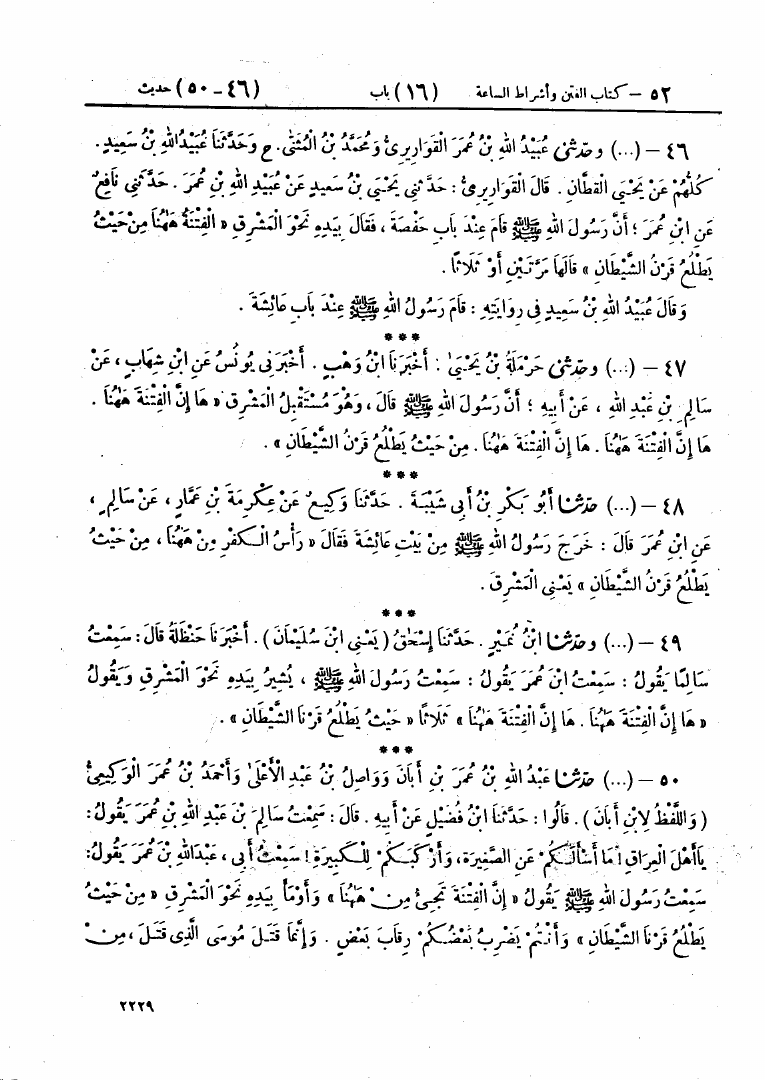 ٥٢ – كتاب الفتن وأشراط الساعة (١٦) باب (٤٦ – ٥٠) حديث
٤٦ – (...) وحَدَّثَنِى عُبَيْدُ اللهِ بْنُ عُمَرَ الْقَوَارِيرِىُّ وَمُحَمَّدُ بْنُ الْمُثَنَّى. ح وَحَدَّثَنَا عُبَيْدُ اللهِ بْنُ سَعِيدٍ.
كُلُّهُمْ عَنْ يَحْيَى الْقَطَّانِ. قَالَ الْقَوَارِيرِىُّ: حَدَّثَنِى يَحْيَى بْنُ سَعِيدٍ عَنْ عُبَيْدِ اللهِ بْنِ عُمَرَ. حَدَّثَنِى نَافِعٌ
عَنِ ابْنِ عُمَرَ؛ أَنَّ رَسُولَ اللهِ ﷺ قَامَ عِنْدَ بَابِ حَفْصَةَ، فَقَالَ بِيَدِهِ نَحْوَ الْمَشْرِقِ « الْفِتْنَةُ هٰهُنَا مِنْ حَيْثُ
يَطْلُعُ قَرْنُ الشَّيْطَانِ » قَالَهَا مَرَّتَيْنِ أَوْ ثَلَاثًا.
وَقَالَ عُبَيْدُ اللهِ بْنُ سَعِيدٍ فِى رِوَايَتِهِ: قَامَ رَسُولُ اللهِ ﷺ عِنْدَ بَابِ عَائِشَةَ.
***
٤٧ – (...) وحَدَّثَنِى حَرْمَلَةُ بْنُ يَحْيَىٰ. أَخْبَرَنَا ابْنُ وَهْبٍ. أَخْبَرَنِى يُونُسُ عَنِ ابْنِ شِهَابٍ، عَنْ
سَالِمِ بْنِ عَبْدِ اللهِ، عَنْ أَبِيهِ؛ أَنَّ رَسُولَ اللهِ ﷺ قَالَ، وَهُوَ مُسْتَقْبِلُ الْمَشْرِقِ « هَا إِنَّ الْفِتْنَةَ هٰهُنَا.
هَا إِنَّ الْفِتْنَةَ هٰهُنَا. هَا إِنَّ الْفِتْنَةَ هٰهُنَا. مِنْ حَيْثُ يَطْلُعُ قَرْنُ الشَّيْطَانِ ».
***
٤٨ – (...) حَدَّثَنَا أَبُو بَكْرِ بْنُ أَبِى شَيْبَةَ. حَدَّثَنَا وَكِيعٌ عَنْ عِكْرِمَةَ بْنِ عَمَّارٍ، عَنْ سَالِمٍ،
عَنِ ابْنِ عُمَرَ قَالَ: خَرَجَ رَسُولُ اللهِ ﷺ مِنْ بَيْتِ عَائِشَةَ فَقَالَ « رَأْسُ الْكُفْرِ مِنْ هٰهُنَا، مِنْ حَيْثُ
يَطْلُعُ قَرْنُ الشَّيْطَانِ » يَعْنِى الْمَشْرِقَ.
***
٤٩ – (...) وحَدَّثَنَا ابْنُ نُمَيْرٍ. حَدَّثَنَا إِسْحَٰقُ (يَعْنِى ابْنَ سُلَيْمَانَ). أَخْبَرَنَا حَنْظَلَةُ قَالَ: سَمِعْتُ
سَالِمًا يَقُولُ: سَمِعْتُ ابْنَ عُمَرَ يَقُولُ: سَمِعْتُ رَسُولَ اللهِ ﷺ، يُشِيرُ بِيَدِهِ نَحْوَ الْمَشْرِقِ وَيَقُولُ
« هَا إِنَّ الْفِتْنَةَ هٰهُنَا. هَا إِنَّ الْفِتْنَةَ هٰهُنَا » ثَلَاثًا « حَيْثُ يَطْلُعُ قَرْنَا الشَّيْطَانِ ».
***
٥٠ – (...) حَدَّثَنَا عَبْدُ اللهِ بْنُ عُمَرَ بْنِ أَبَانَ وَوَاصِلُ بْنُ عَبْدِ الْأَعْلَىٰ وَأَحْمَدُ بْنُ عُمَرَ الْوَكِيعِىُّ
(وَاللَّفْظُ لِابْنِ أَبَانَ). قَالُوا: حَدَّثَنَا ابْنُ فُضَيْلٍ عَنْ أَبِيهِ. قَالَ: سَمِعْتُ سَالِمَ بْنَ عَبْدِ اللهِ بْنِ عُمَرَ يَقُولُ:
يَا أَهْلَ الْعِرَاقِ! مَا أَسْأَلَكُمْ عَنِ الصَّغِيرَةِ، وَأَرْكَبَكُمْ لِلْكَبِيرَةِ! سَمِعْتُ أَبِى، عَبْدَ اللهِ بْنَ عُمَرَ يَقُولُ:
سَمِعْتُ رَسُولَ اللهِ ﷺ يَقُولُ « إِنَّ الْفِتْنَةَ تَجِىءُ مِنْ هٰهُنَا » وَأَوْمَأَ بِيَدِهِ نَحْوَ الْمَشْرِقِ « مِنْ حَيْثُ
يَطْلُعُ قَرْنَا الشَّيْطَانِ » وَأَنْتُمْ يَضْرِبُ بَعْضُكُمْ رِقَابَ بَعْضٍ. وَإِنَّمَا قَتَلَ مُوسَى الَّذِى قَتَلَ، مِنْ
٢٢٢٩